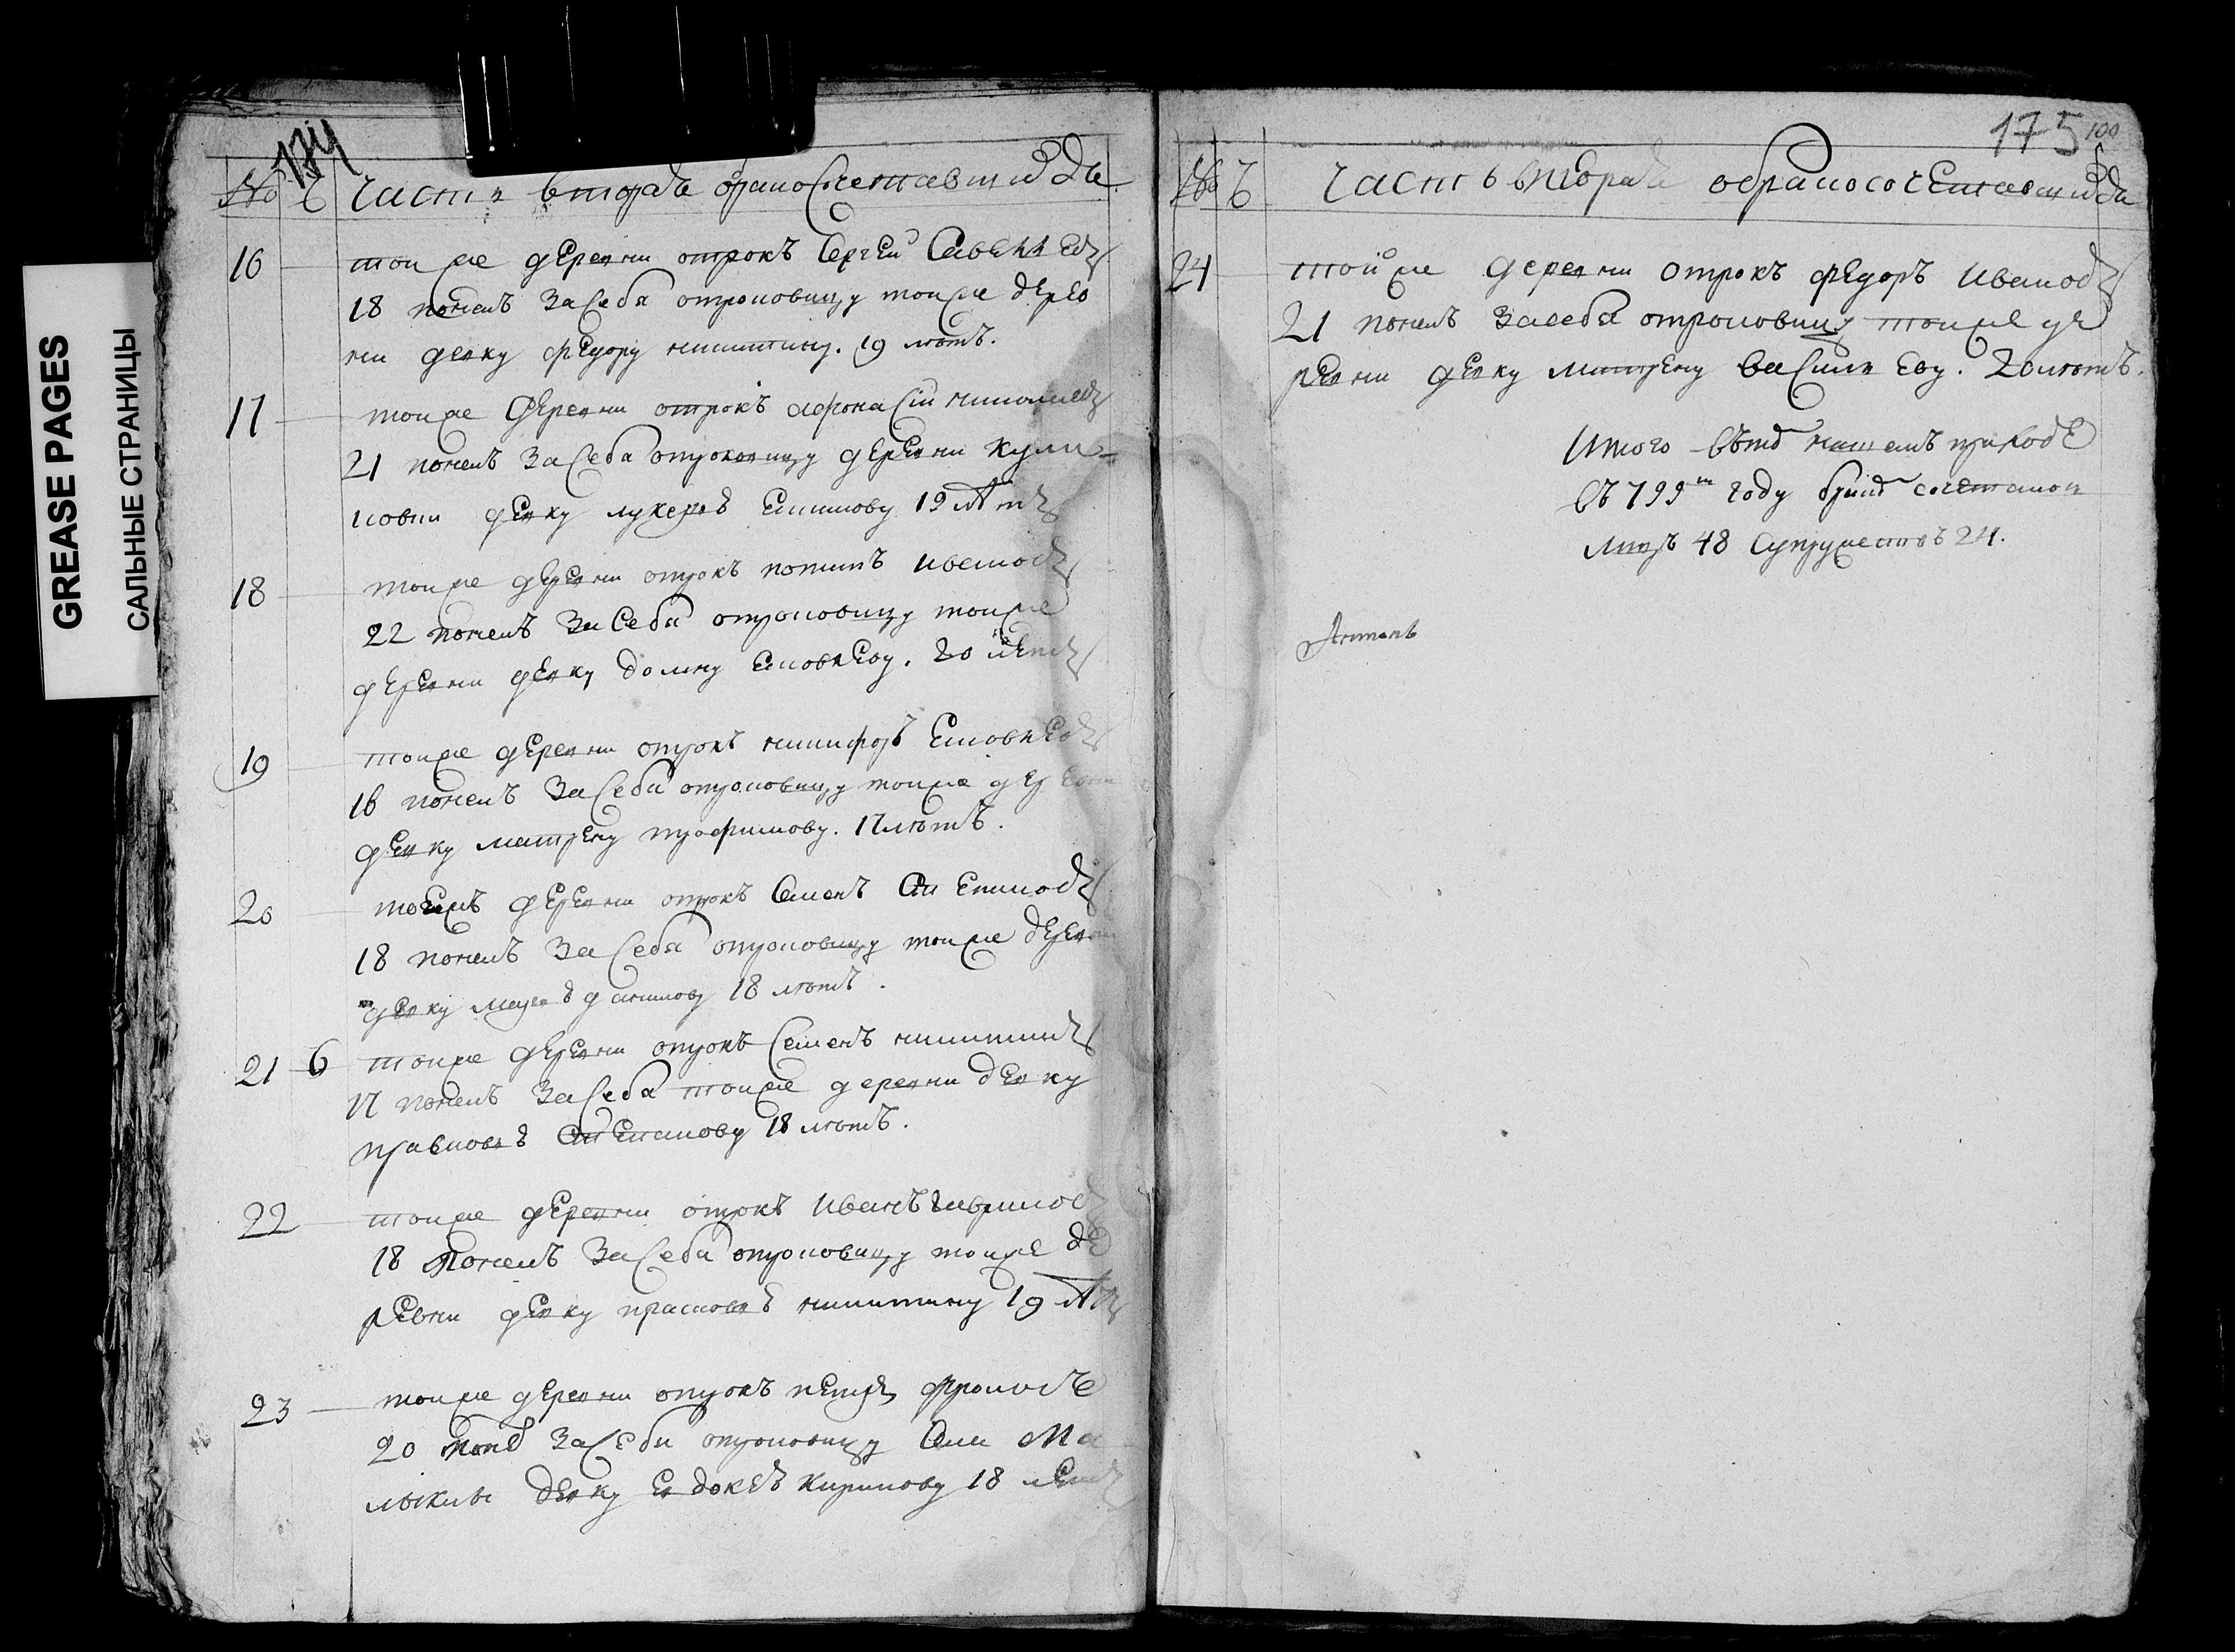 GREASE PAGES
САЛЬНЫЕ СТРАНИЦЫ
174
№ Ч Части вторая бракосочетавшиися
16 тоиже деревни отрокъ Сергеи Савельевъ
18 понялъ за себя отроковицу тоиже дерев
ни девку федору никитину. 19 лѣтъ.
17 тоиже деревни отрокъ афонасiи никит
21 понялъ за себя отроковицу деревни кули-
ковки девку лукерю 19 летъ
18 тоиже деревни отрокъ потапъ ивановъ
22 понялъ за себя отроковицу тоиже
деревни девку домну яковлеву. 20 летъ
19 тоиже деревни отрокъ никифоръ яковлевъ
16 понялъ за себя отроковицу тоиже деревни
девку матрену трофимову. 17 лѣтъ.
20 тоежъ деревни отрокъ семенъ степановъ
18 понялъ за себя отроковицу тоиже деревни
девку марю данилову 18 лѣтъ.
21 6 тоиже деревни отрокъ семенъ никитинъ
17 понялъ за себя тоиже деревни девку
прасковю степанову 18 лѣтъ.
22 тоиже деревни отрокъ иванъ гавриловъ
18 понялъ за себя отроковицу тоиже де
ревни девку прасковю никитину 19 летъ
23 тоиже деревни отрокъ петръ
20 понялъ за себя отроковицу села Ма
лыклы девку евдокею кирилову 18 летъ
175 100
№ Ч Часть вторая обракосочетавшиися
24 тоиже деревни отрокъ федоръ ивановъ
21 понялъ за себя отроковицу тоиже де
ревни девку матрену васильеву. 20 лѣтъ.
Итого въ нашемъ приходе
въ 799м году бракомъ сочетано
лицъ 48 супружествъ 24.